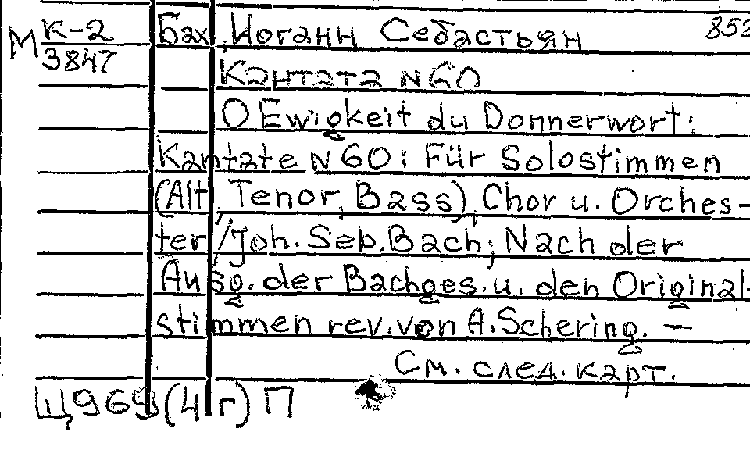 М К-2 Бах, Иоганн Себастьян 852
3847
Кантата N60
O Ewigkeit du Donnerwort:
Kantate N60: Für Solostimmen
(Alt, Tenor, Bass), Chor u. Orches-
ter / Joh. Seb. Bach; Nach der
Ausg. der Bachges. u. den Original-
stimmen rev. von A. Schering. —
См. след. карт.
Щ969(4Г)П